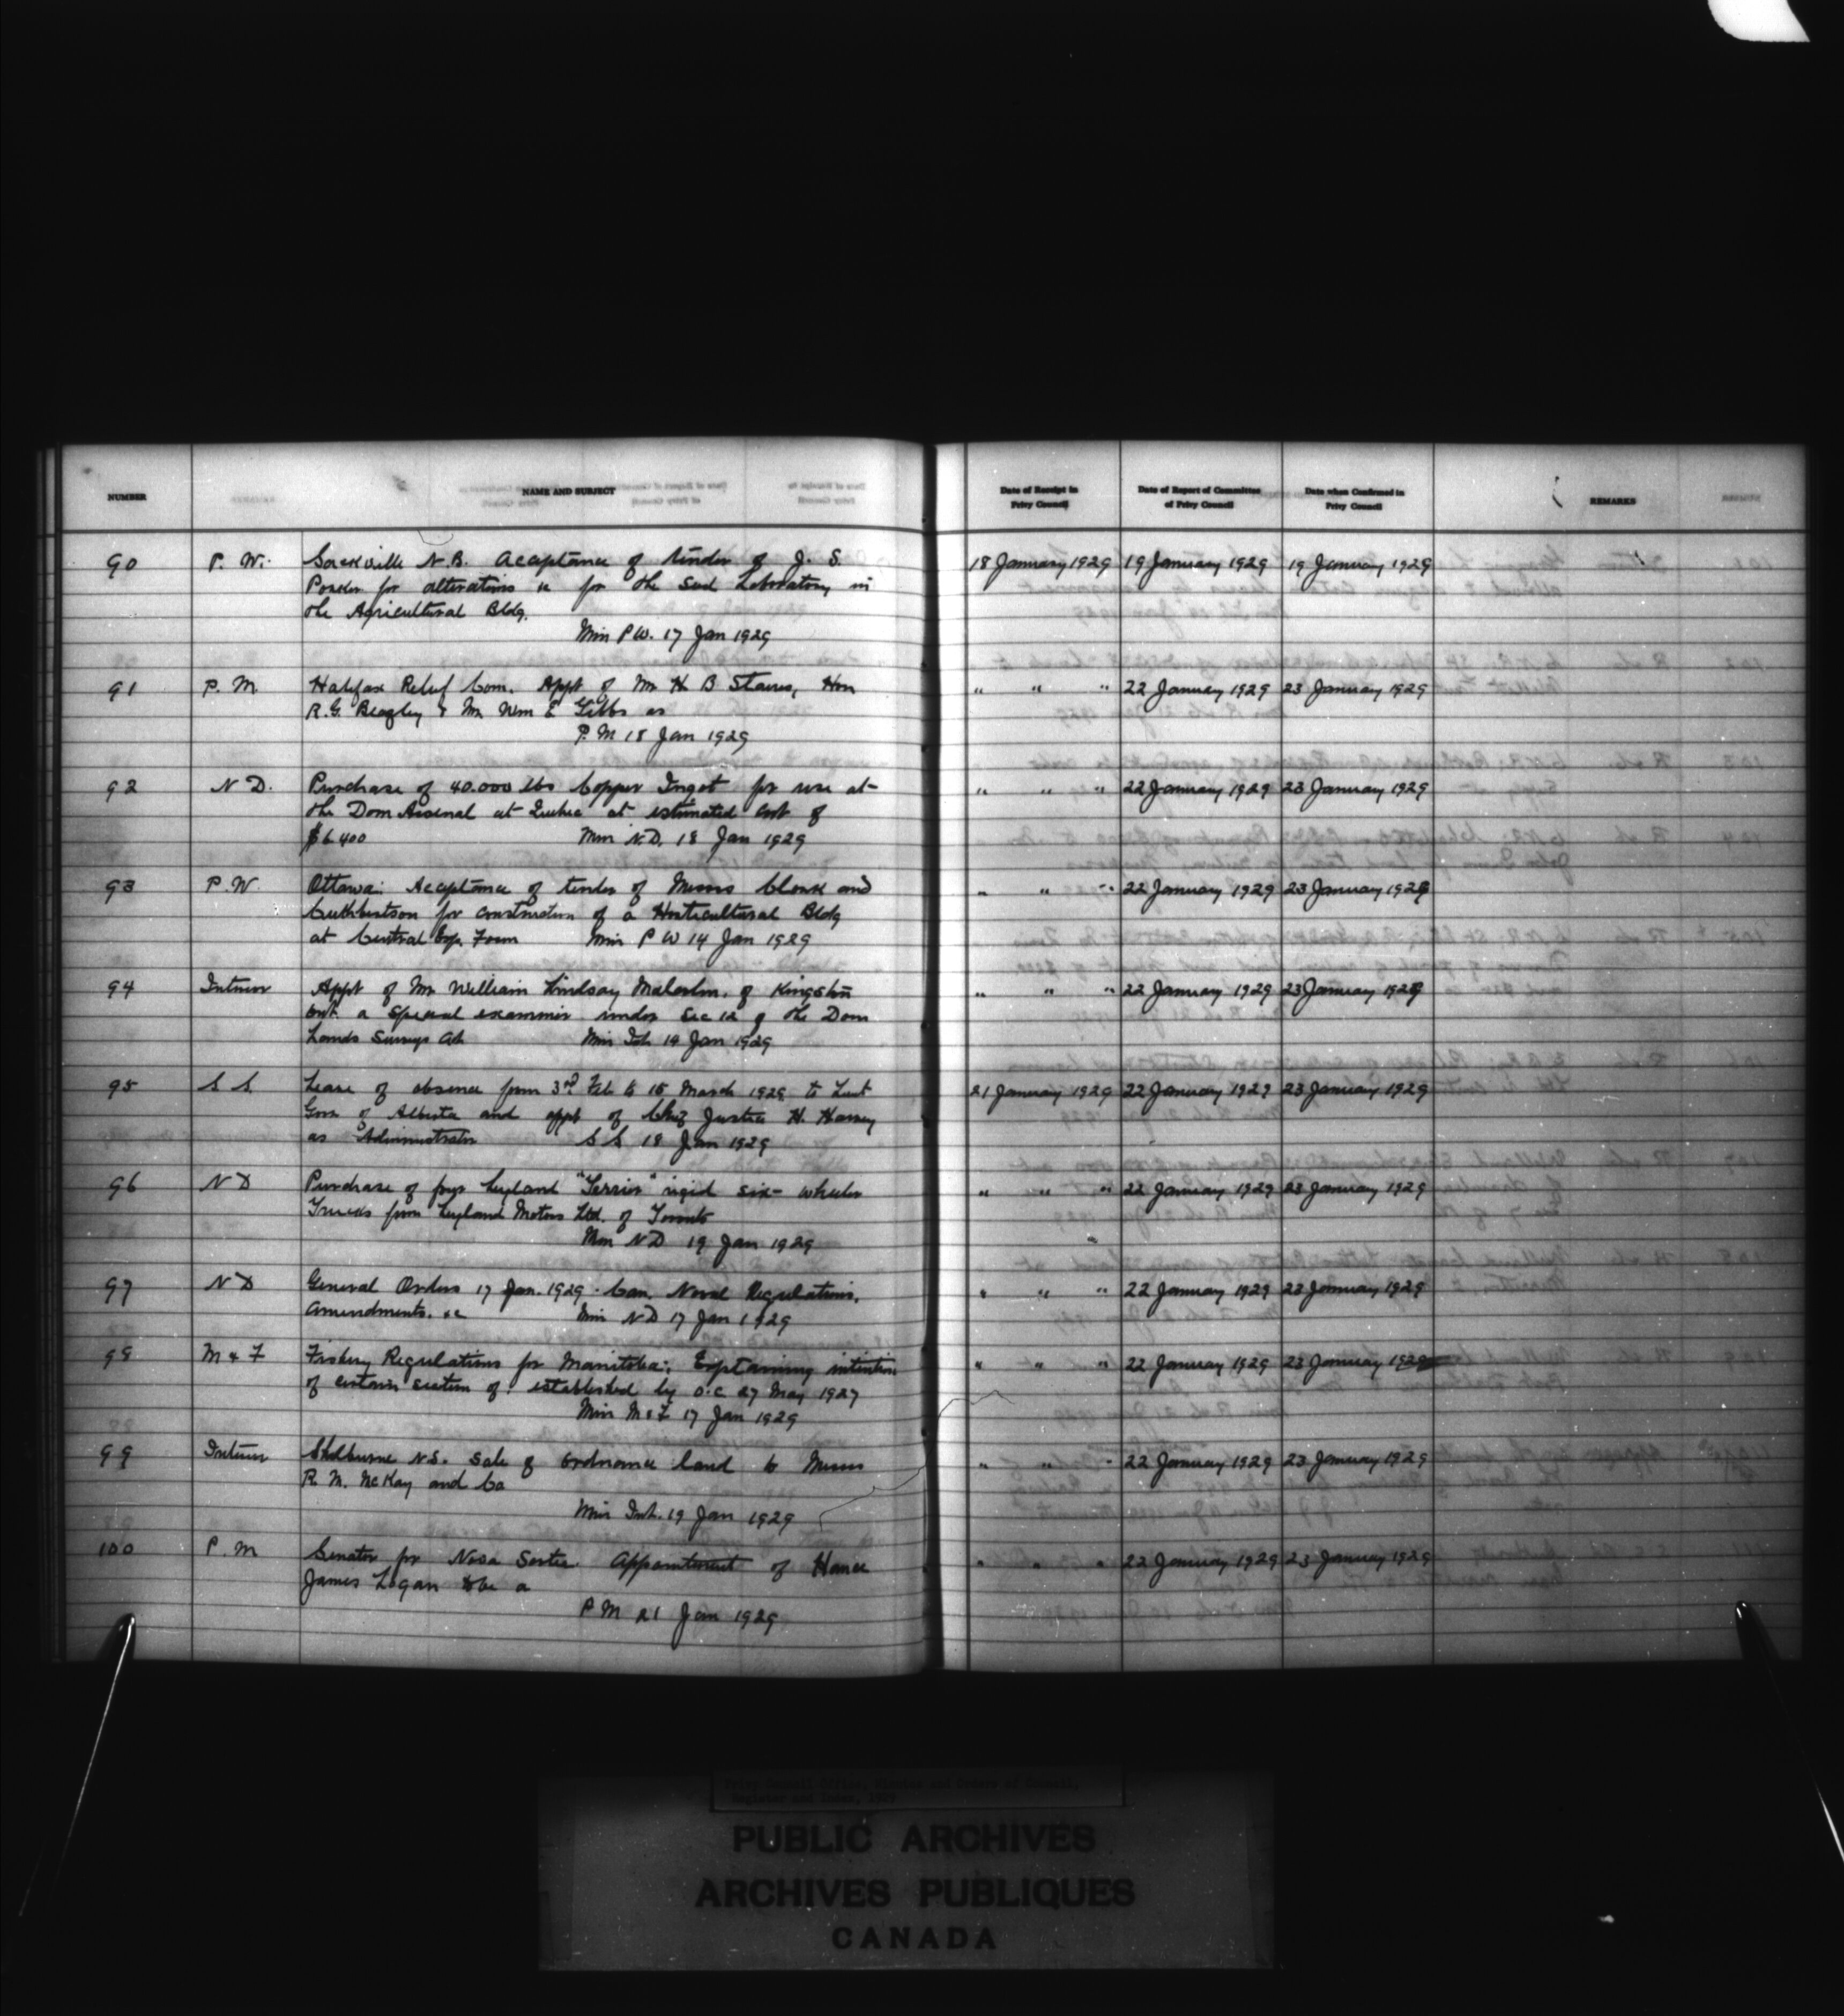 NUMBER NAME AND SUBJECT Date of Receipt in Privy Council Date of Report of Committee of Privy Council Date when Confirmed in Privy Council REMARKS
90 P. W. Sackville N.B. Acceptance of tender of J. S. 18 January 1929 19 January 1929 19 January 1929
for alterations &c for the Seed Laboratory in
the Agricultural Bldg.
Min P.W. 17 Jan 1929
91 P. M. Halifax Relief Com. Appt of Mr H B Stairs, Hon " " " 22 January 1929 23 January 1929
R.G. Beazley & Mr Wm E Tibbs as
P.M 18 Jan 1929
92 N D. Purchase of 40.000 lbs Copper Ingot for use at " " " 22 January 1929 23 January 1929
the Dom Arsenal at Quebec at estimated cost of
$6400 Min N.D. 18 Jan 1929
93 P.W. Ottawa: Acceptance of tender of Messrs Clark and " " " 22 January 1929 23 January 1929
Cuthbertson for construction of a Horticultural Bldg
at Central Exp. Farm Min P W 14 Jan 1929
94 Interior Appt of Mr William Lindsay Malcolm, of Kingston " " " 22 January 1929 23 January 1929
Ont. a Special examiner under Sec 12 of the Dom
Lands Surveys Act Min Int. 14 Jan 1929
95 S S. Leave of absence from 3rd Feb to 15 March 1929 to Lieut 21 January 1929 22 January 1929 23 January 1929
Gov of Alberta and appt of Chief Justice H. Harvey
as Administrator S S 18 Jan 1929
96 N D Purchase of four Leyland "Terrier" rigid six-wheeler " " " 22 January 1929 23 January 1929
Trucks from Leyland Motors Ltd. of Toronto
Min N D 19 Jan 1929
97 N D General Orders 17 Jan. 1929. Can. Naval Regulations, " " " 22 January 1929 23 January 1929
Amendments. &c Min N D 17 Jan 1929
98 M & F Fishery Regulations for Manitoba: Explaining intention " " " 22 January 1929 23 January 1929
of certain section of: established by O.C 27 May 1927
Min M & F 17 Jan 1929
99 Interior Shelburne N.S. Sale of Ordnance land to Messrs " " " 22 January 1929 23 January 1929
R. M. McKay and Co
Min Int. 19 Jan 1929
100 P. M Senator for Nova Scotia Appointment of Hance " " " 22 January 1929 23 January 1929
James Logan to be a
P M 21 Jan 1929
Privy Council Office, Minutes and Orders in Council,
Register and Index, 1929
PUBLIC ARCHIVES
ARCHIVES PUBLIQUES
CANADA